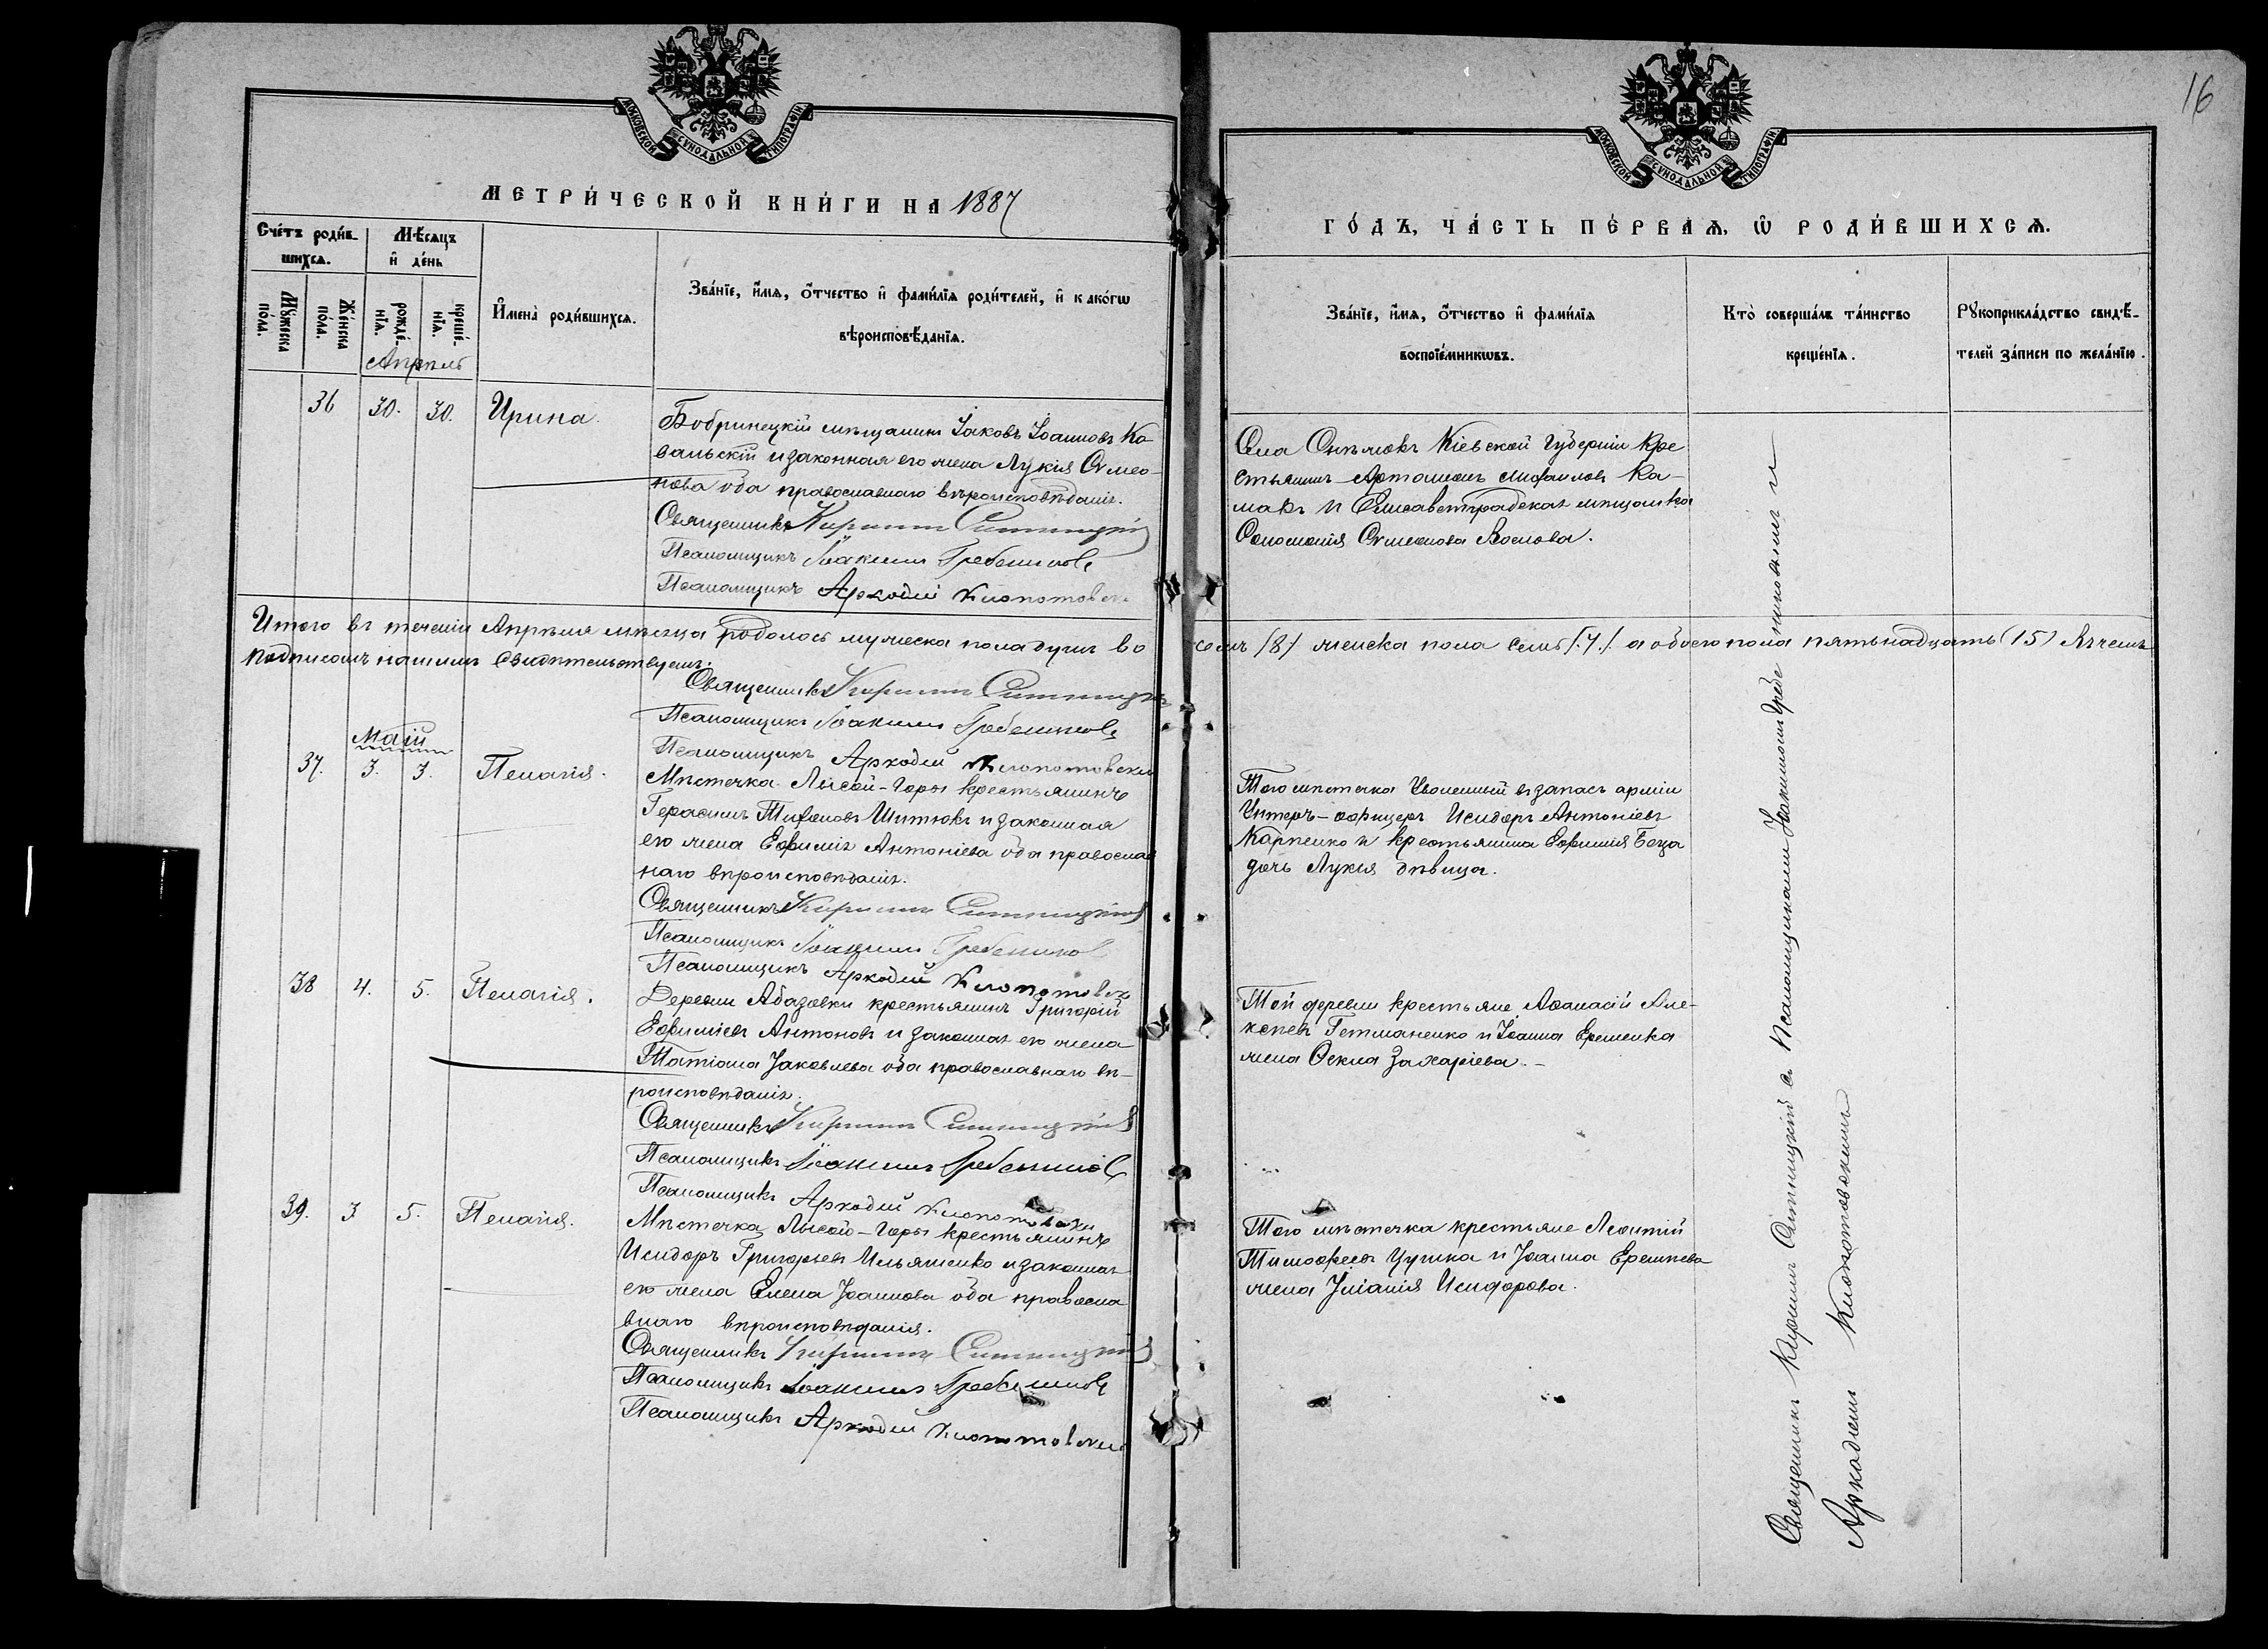 16
МОСКОВСКОЙ СѴНОДАЛЬНОЙ ТИПОГРАФІИ
МОСКОВСКОЙ СѴНОДАЛЬНОЙ ТИПОГРАФІИ
МЕТРИ́ЧЕСКОЙ КНИ́ГИ НА 1887
ГО́ДЪ, ЧА́СТЬ ПЕ́РВАѦ, Ѡ҆ РОДИ́ВШИХСѦ.
Сче́тъ роди́в-
шихсѧ.
Мѣ́сѧцъ
и҆ де́нь
Мꙋ́жеска
по́ла.
Же́нска
по́ла.
рожде́-
нїѧ.
креще́-
нїѧ.
И҆мена̀ роди́вшихсѧ.
Зва́нїе, и҆́мѧ, ѻ҆́тчество и҆ фами́лїѧ роди́телей, и҆ како́гѡ
вѣроисповѣ́данїѧ.
Зва́нїе, и҆́мѧ, ѻ҆́тчество и҆ фами́лїѧ
воспрїе́мникѡвъ.
Кто̀ соверша́лъ та́инство
креще́нїѧ.
Рꙋкоприкла́дство свидѣ́-
телей за́писи по жела́нїю.
Апрѣль
36 30. 30. Ирина.
Бобринецкій мѣщанинъ Іаковъ Іоанновъ Ко
вальскій и законная его жена Лукія Сѵмео-
нова оба православнаго вѣроисповѣданія.
Священникъ Кириллъ Ситницкій
Псаломщикъ Іоакимъ Гребениковъ
Псаломщикъ Аркадій Клопотовск
Кіевской Губерніи Кре
стьянинъ Михаиловъ Ка-
и Елисаветградская мѣщанка
Соломонія Сѵмеонова
Итого въ теченіи Апрѣля мѣсяца родолось мужеска пола душъ во семъ (8) женска пола семь (7) а обоего пола пятьнадцать (15) въ чемъ
подписомъ нашимъ свидѣтельствуемъ.
Священникъ Кириллъ Ситницкій
Псаломщикъ Іоакимъ Гребениковъ
Псаломщикъ Аркадій Клопотовски
Май
37. 3. 3. Пелагія.
Мѣстечка Лысой-Горы крестьянинъ
Герасимъ и законная
его жена Евфимія Антоніева оба православ
наго вѣроисповѣданія.
Священникъ Кириллъ Ситницкій
Псаломщикъ Іоакимъ Гребениковъ
Псаломщикъ Аркадій Клопотовск
Того мѣстечка Уволенный въ запасъ арміи
Унтеръ-офицеръ Исидоръ Антоніевъ
Карпенко и крестьянина Евфимія
дочь Лукія дѣвица.
38 4. 5. Пелагія.
Деревни Абазовки крестьянинъ Григорій
Евфиміевъ Антоновъ и законная его жена
Татіана Іаковлева оба православнаго вѣ-
роисповѣданія.
Священникъ Кириллъ Ситницкій
Псаломщикъ Іоакимъ Гребениковъ
Псаломщикъ Аркадій Клопотовски
Той деревни крестьяне Аѳанасій Але-
ксѣевъ Гетманенко и Іоанна Еременка
жена Ѳекла Захаріева.-
39. 3 5. Пелагія.
Мѣстечка Лысой-Горы крестьянинъ
Исидоръ Григорьевъ Ильяшенко и законная
его жена Елена Іоаннова оба правосла
внаго вѣроисповѣданія.
Священникъ Кириллъ Ситницкій
Псаломщикъ Іоакимъ Гребениковъ
Псаломщикъ Аркадій Клопотовски
Того мѣстечка крестьяне Леонтій
Тимоѳеевъ и Іоанна Еремѣева
жена Іуліанія Исидорова.
Священникъ Кириллъ Ситницкій съ Псаломщиками Іоакимомъ Гребениковымъ и
Аркадіемъ Клопотовскимъ